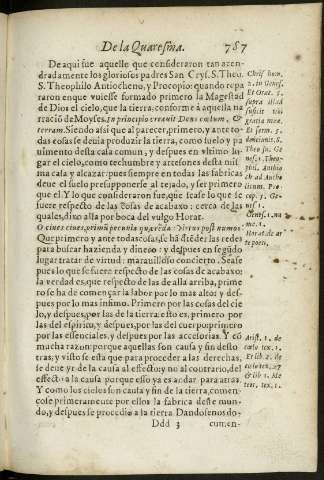 De la Quaresma. 787
De aqui fue aquello que consideraron tan acen-
dradamente los gloriosos padres San Crys. S. Theo.
S. Theophilo Antiocheno, y Procopio: quando repa
raron en que vuiesse formado primero la Magestad
de Dios el cielo, que la tierra: conforme à aquella na
rració de Moyses. In principio creauit Deus cœlum, &
terram. Siendo assi que al parecer, primero, y ante to-
das cosas se deuia produzir la tierra, como suelo y pa
uimento desta casa comun, y despues en vltimo lu-
gar el cielo, como techumbre y artesones desta misi
ma casa y alcazar: pues siempre en todas las fabricas
deue el suelo presupponerse al tejado, y ser primero
que el. Y lo que consideraron fue, que sease lo que se
fuere respecto de las cosas de acabaxo: cerca de las
quales, dixo alla por boca del vulgo Horat.
O ciues ciues, primũ pecunia quærẽda: Virtus post numos.
Que primero y ante todas cosas, se hã de tẽder las redes
para buscar hazienda y dinero: y despues en segũdo
lugar tratar de virtud: marauilloso concierto. Sease
pues lo que se fuere respecto de las cosas de acabaxo:
la verdad es, que respecto de las de alla arriba, prime
ro se ha de començar la labor por lo mas alto; y des-
pues por lo mas infimo. Primero por las cosas del cie
lo, y despues, por las de la tierra: esto es, primero por
las del espiritu, y despues, por las del cuerpo: primero
por las essenciales, y despues por las accesorias. Y cõ
mucha razon: porque aquellas son causa y fin desto
tras, y visto se esta que para proceder a las derechas,
se deue yr de la causa al efecto: y no al contrario, del
effecto a la causa porque esso ya es andar por atras.
Y como los cielos son causa y fin de la tierra, comen-
cose primeramente por ellos la fabrica deste mun-
do, y despues se procedio a la tierra. Dandosenos do-
Ddd 3 cumen-
Chris. hom.
2. in Genes.
Et Orat. 5.
supra illud
Theo. q.
Genes. 1.
Horat. de ar
te poet.
Arist. 1. de
cœlo tex. 1.
Et lib. 2. de
& lib. 1. Me
teor. tex. 1.